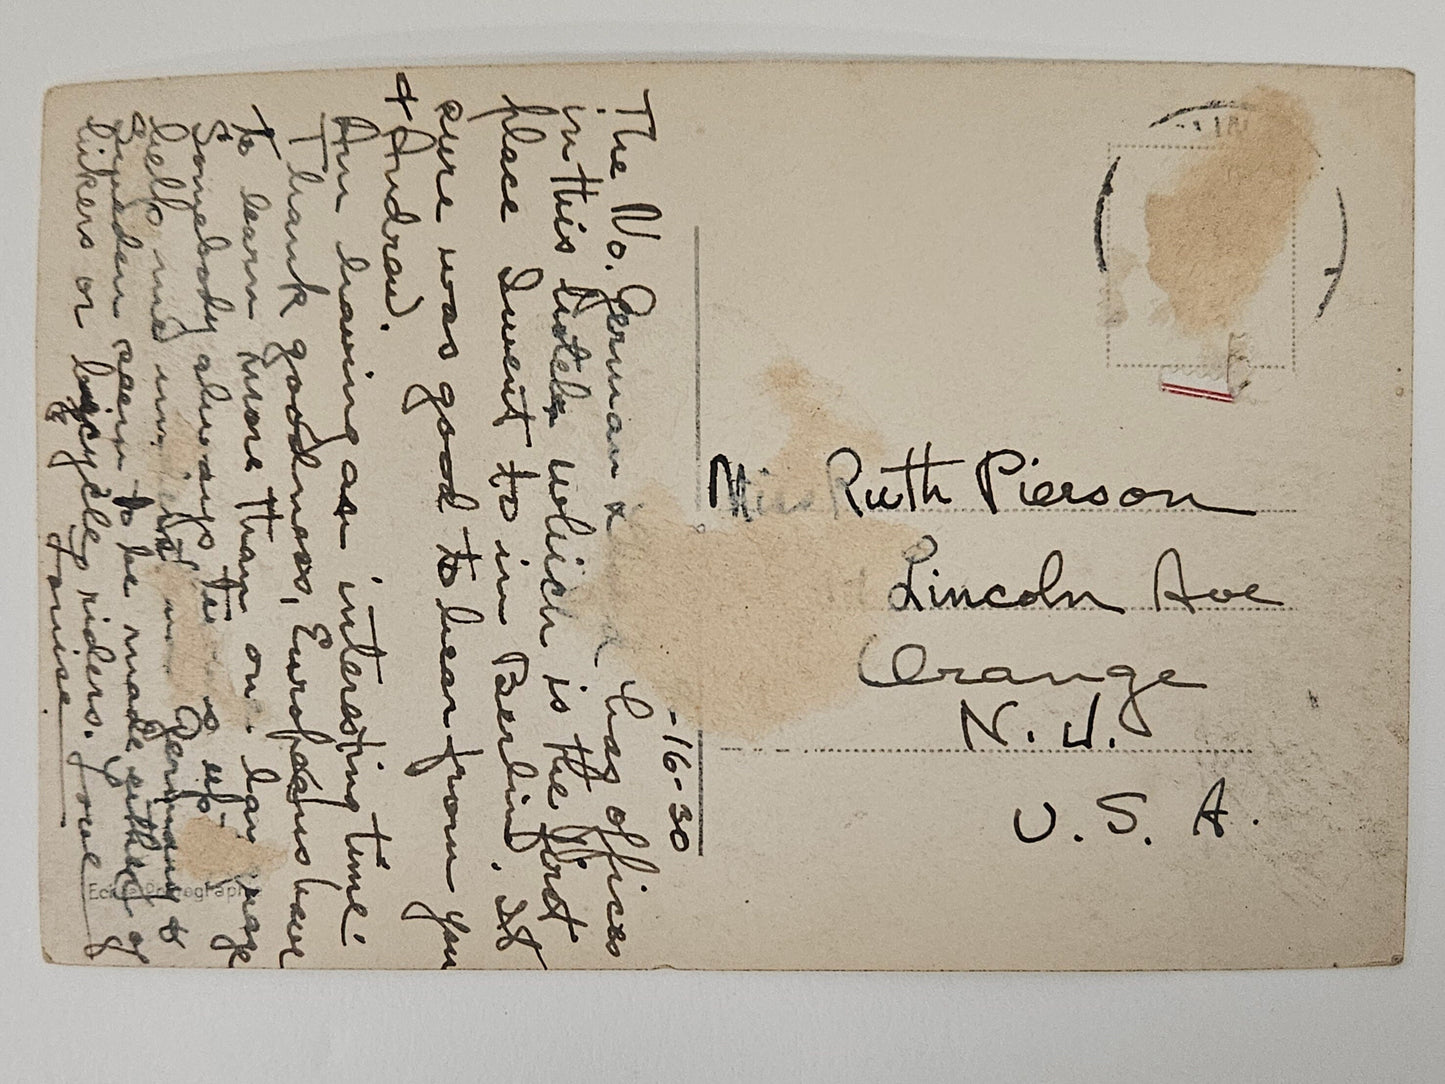 -16-30
The No. German Lloyd has offices
in this hotel which is the first
place I went to in Berlin. It
sure was good to hear from you
& Andrew.
Am having an interesting time.
Thank goodness, Europeans have
to learn more than one language
Somebody always turns up
help me in Germany &
Sweden seem to be made either of
hikers or bicycle riders. Love
Louise
Miss Ruth Pierson
Lincoln Ave
Orange
N. J.
U. S. A.